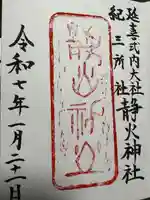 延喜式内大社
紀三所社
静火神社
静火神社
令和七年一月二十一日